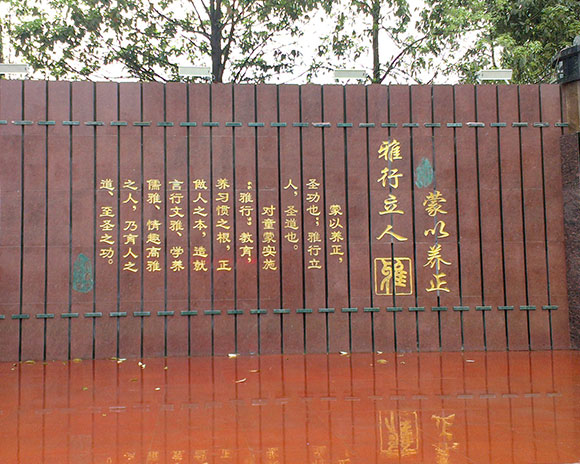 蒙以养正
雅行立人
雅
蒙以养正，
圣功也；雅行立
人，圣道也。
对童蒙实施
“雅行”教育，
养习惯之根，正
做人之本，造就
言行文雅、学养
儒雅、情趣高雅
之人，乃育人之
道、至圣之功。